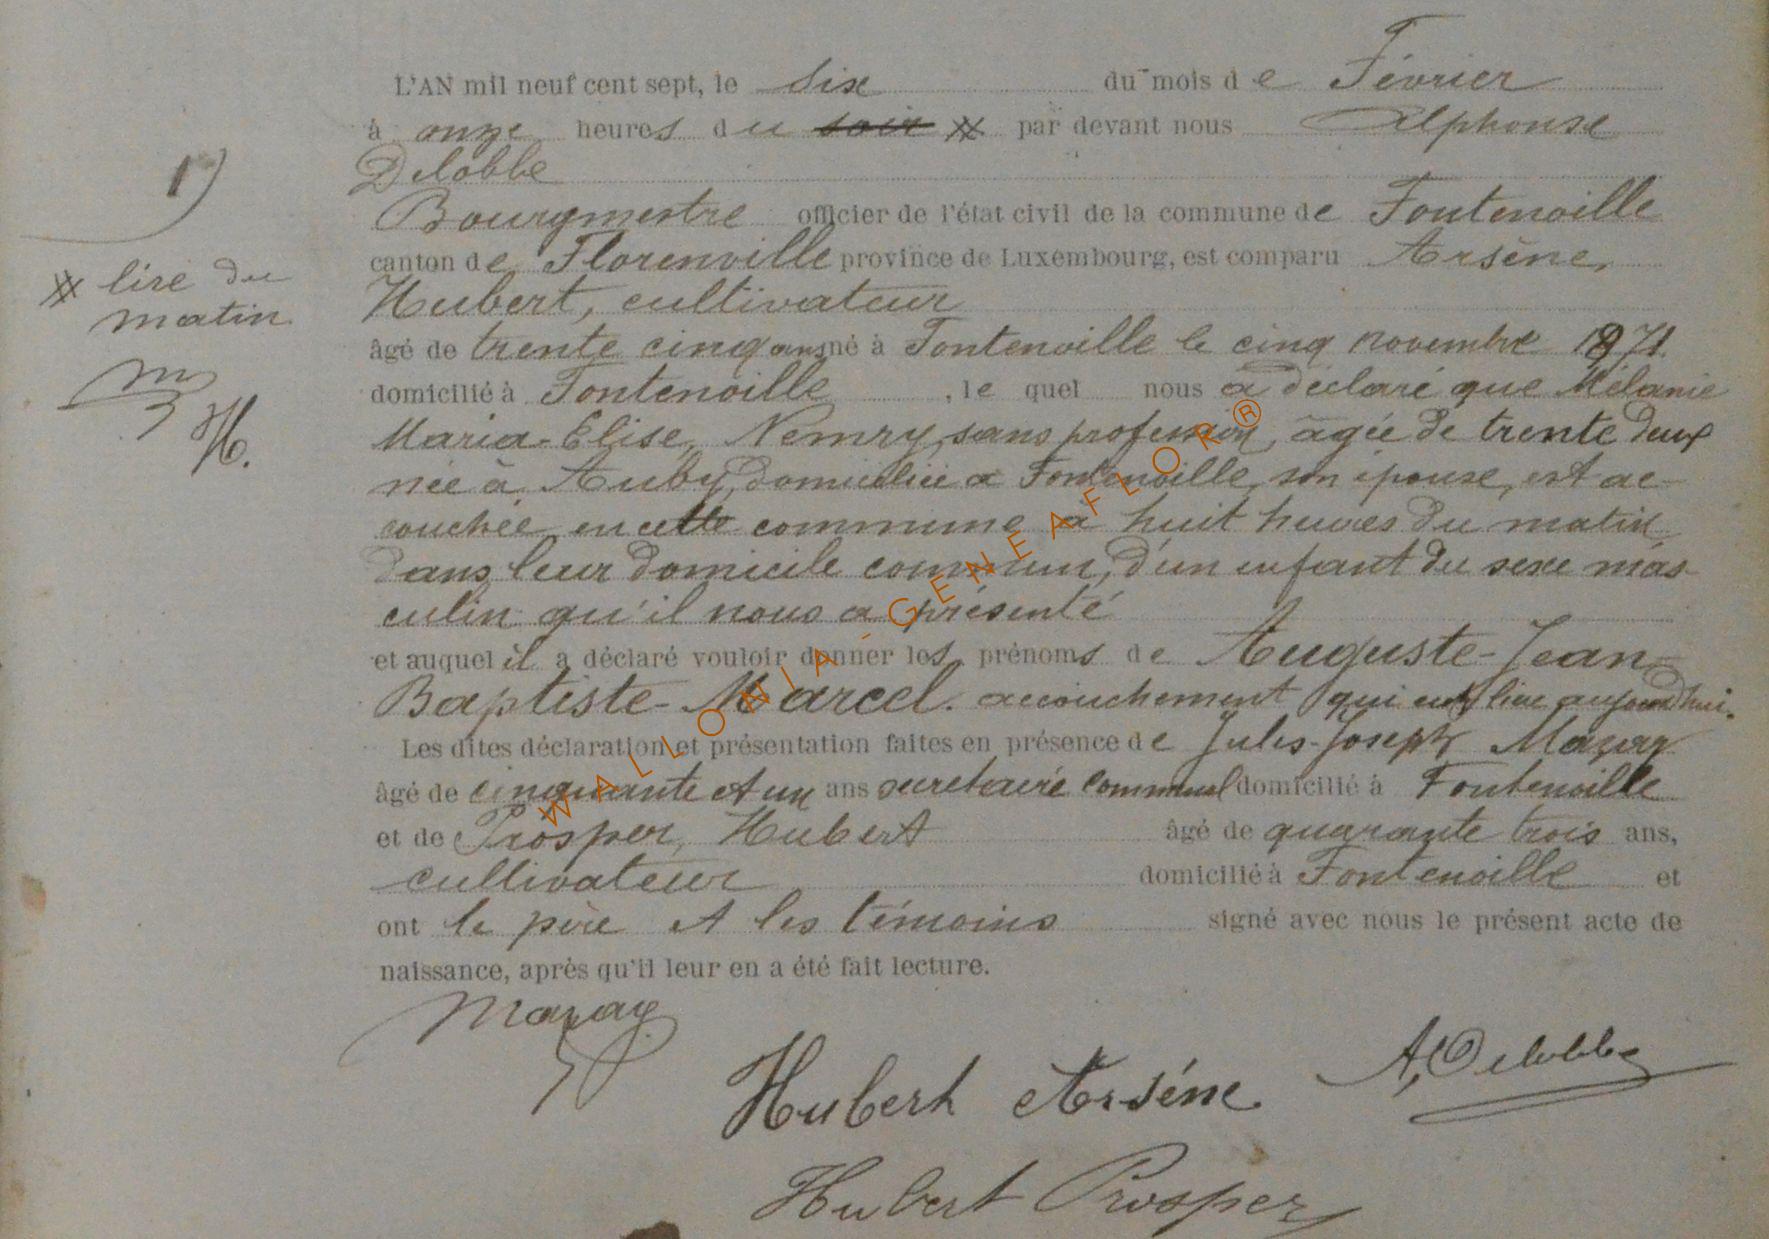 L'AN mil neuf cent sept, le six du mois de Février
à onze heures du soir # par devant nous Alphonse
1)
Delobbe
Bourgmestre officier de l'état civil de la commune de Fontenoille
canton de Florenville province de Luxembourg, est comparu Arsène,
# lire du
Hubert, cultivateur
matin
âgé de trente cinq ans né à Fontenoille le cinq novembre 1871.
domicilié à Fontenoille , le quel nous a déclaré que Mélanie
H.
Maria-Elise, Nemry, sans profession, âgée de trente deux
née à Auby, domiciliée à Fontenoille, son épouse, est ac-
couchée en cette commune à huit heures du matin
dans leur domicile commun, d'un enfant du sexe mas-
culin qu'il nous a présenté
et auquel il a déclaré vouloir donner les prénoms de Auguste-Jean-
Baptiste-Marcel. accouchement qui eut lieu aujourd'hui.
Les dites déclaration et présentation faites en présence de Jules-Joseph Mazay
âgé de cinquante et un ans secretaire communal domicilié à Fontenoille
et de Prosper, Hubert âgé de quarante trois ans,
cultivateur domicilié à Fontenoille et
ont le père et les témoins signé avec nous le présent acte de
naissance, après qu'il leur en a été fait lecture.
Mazay
A. Delobbe
Hubert Arsène
Hubert Prosper
WALLONIA - GENEAFLOR®